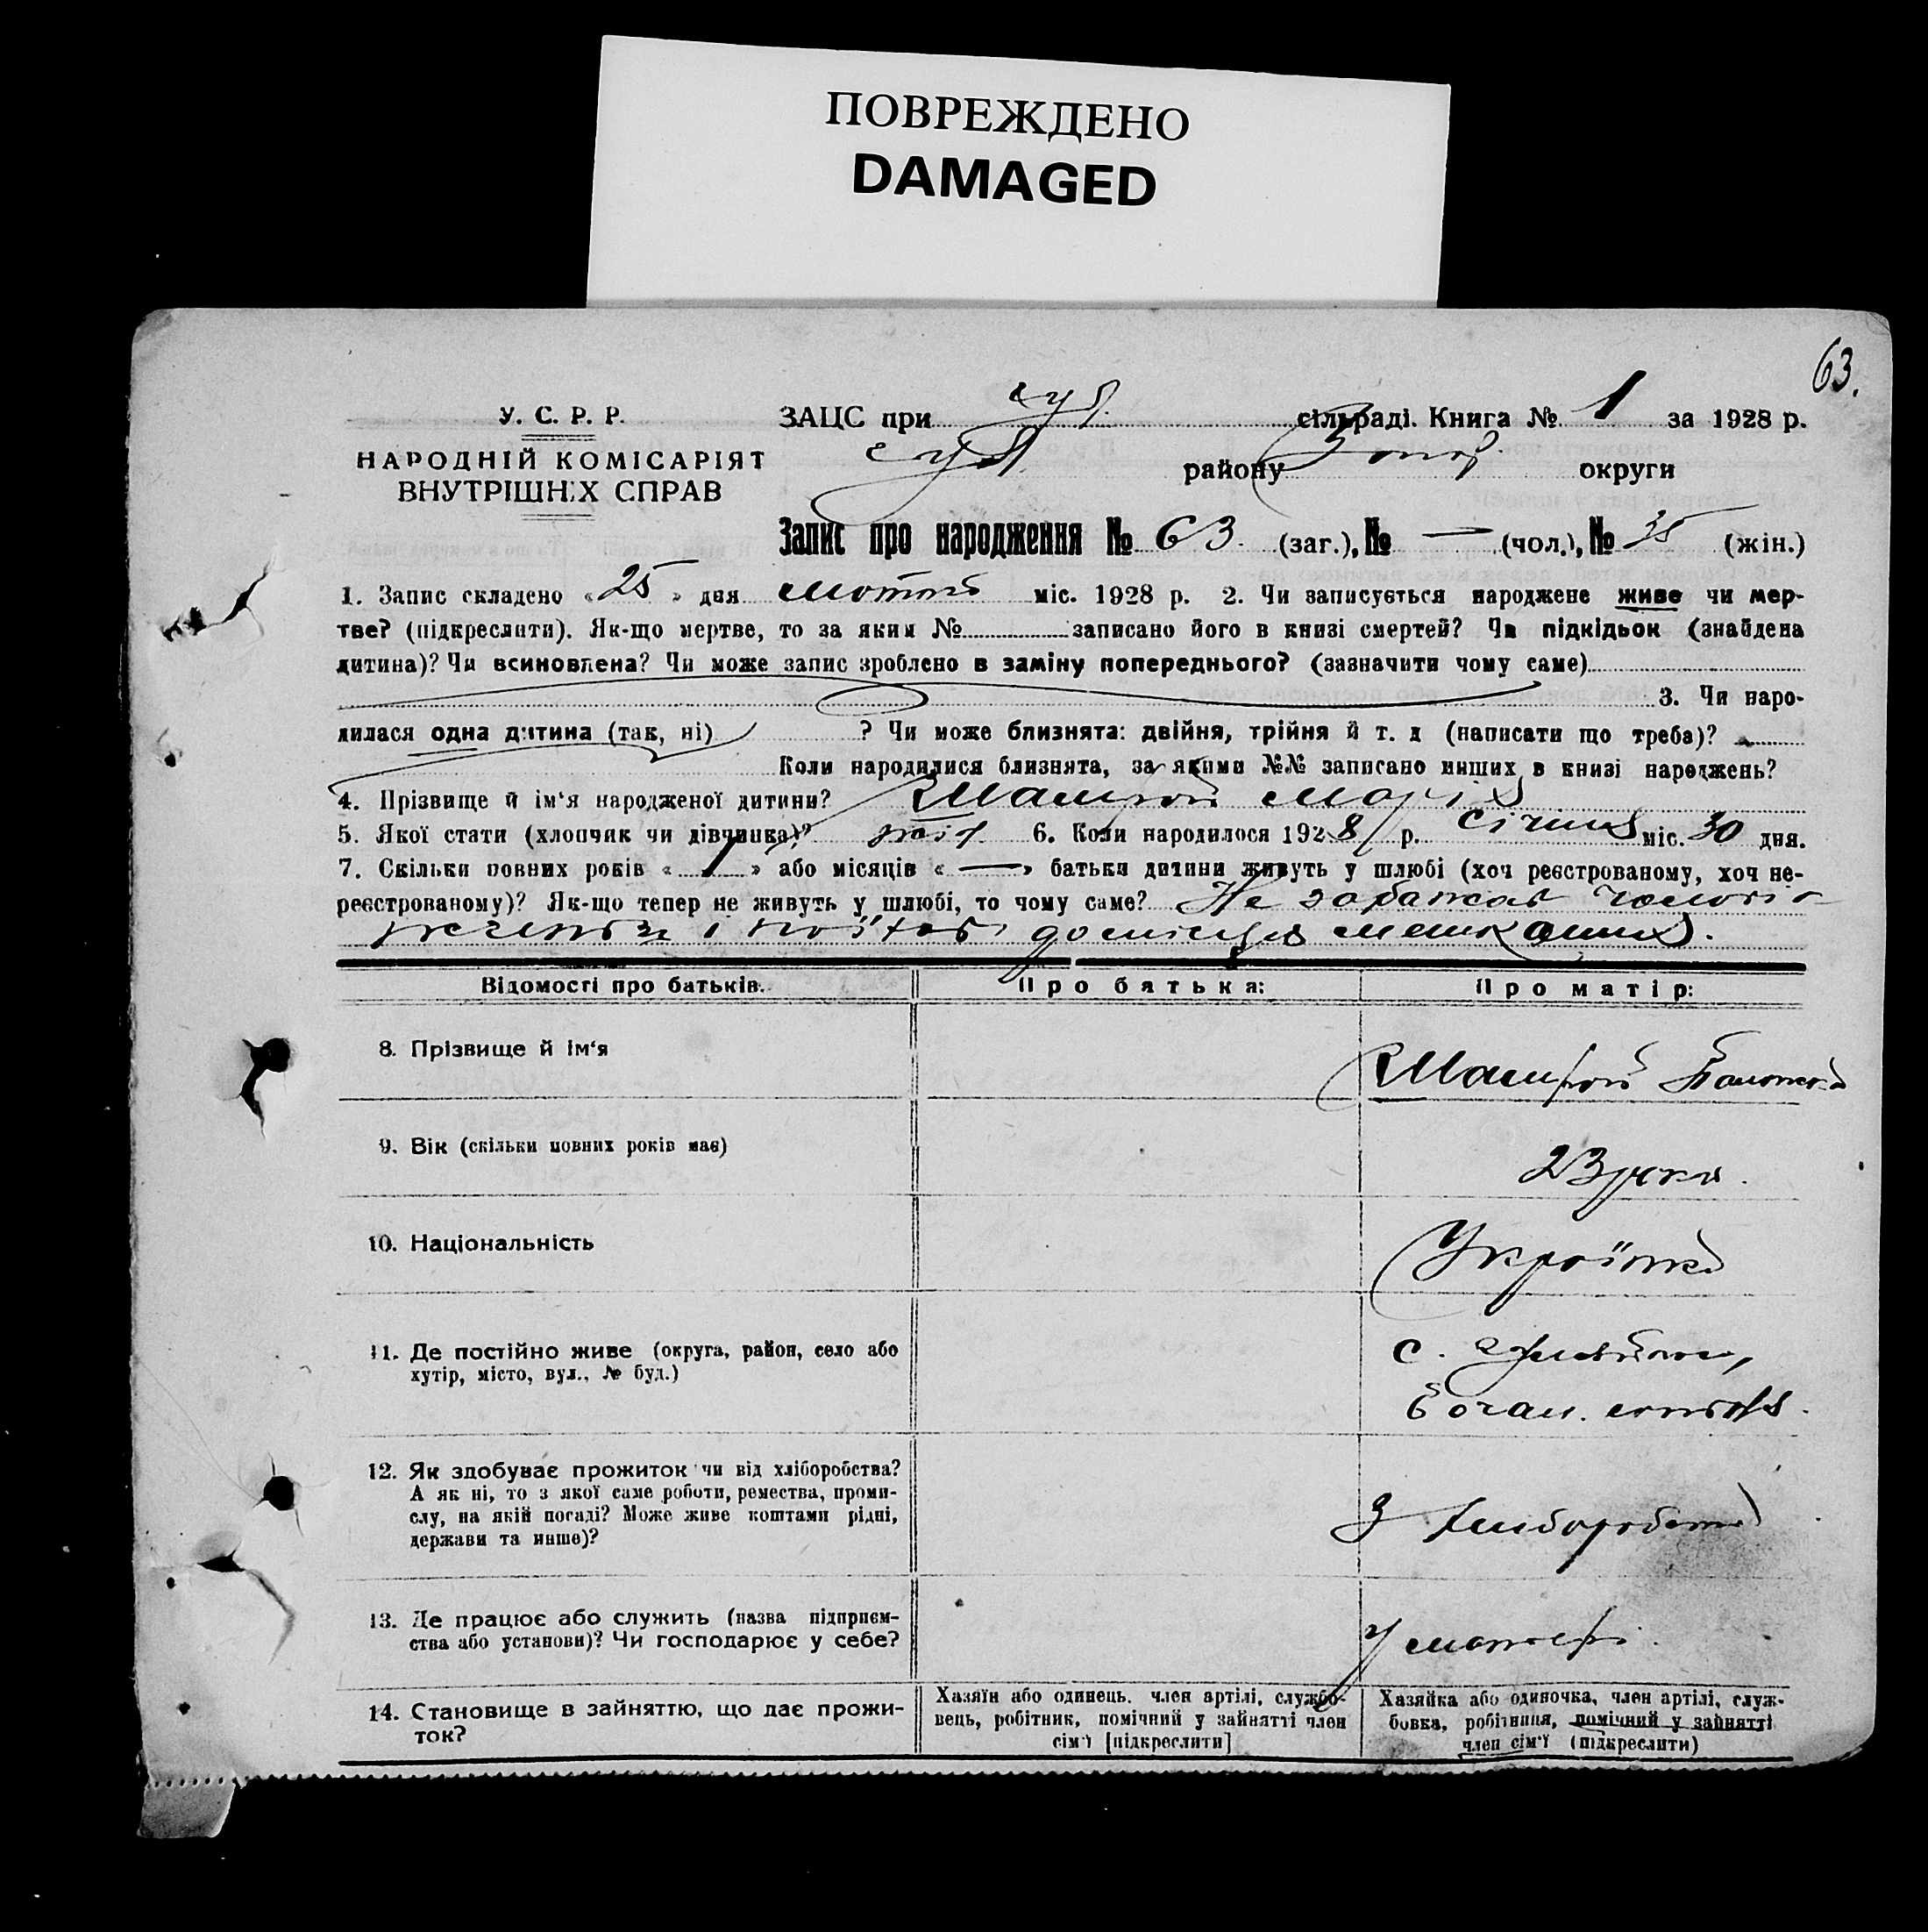 ПОВРЕЖДЕНО
DAMAGED
63.
У. С. Р. Р.
НАРОДНІЙ КОМІСАРІЯТ
ВНУТРІШНІХ СПРАВ
ЗАЦС при сільраді. Книга № 1 за 1928 р.
району Запор. округи
Запис про народження № 63 (заг.), № — (чол.), № 35 (жін.)
1. Запис складено «25» дня лютого міс. 1928 р. 2. Чи записується народжене живе чи мер-
тве? (підкреслити). Як-що мертве, то за яким № записано його в книзі смертей? Чи підкідьок (знайдена
дитина)? Чи всиновлена? Чи може запис зроблено в заміну попереднього? (зазначити чому саме)
3. Чи наро-
дилася одна дитина (так, ні) ? Чи може близнята: двійня, трійня й т. д (написати що треба)?
Коли народилися близнята, за якими №№ записано инших в книзі нароژжень?
4. Прізвище й ім‘я народженої дитини? Марія
5. Якої стати (хлопчик чи дівчинка)? 6. Коли народилося 1928 р. січня міс. 30 дня.
7. Скільки повних років «1» або місяців «—» батьки дитини живуть у шлюбі (хоч реєстрованому, хоч не-
реєстрованому)? Як-що тепер не живуть у шлюбі, то чому саме? Не забажав чоловік
і
Відомості про батьків.
Про батька:
Про матір:
8. Прізвище й ім‘я
9. Вік (скільки повних років має)
23 роки.
10. Національність
Українка
11. Де постійно живе (округа, район, село або
хутір, місто, вул., № буд.)
с.
12. Як здобуває прожиток чи від хліборобства?
А як ні, то з якої саме роботи, ремества, проми-
слу, на якій посаді? Може живе коштами рідні,
держави та инше)?
З хліборобства
13. Де працює або служить (назва підприєм-
ства або установи)? Чи господарює у себе?
У матері.
14. Становище в зайняттю, що дає прожи-
ток?
Хазяїн або одинець, член артілі, службо-
вець, робітник, помічний у зайнятті член
сім‘ї [підкреслити]
Хазяйка або одиночка, член артілі, служ-
бовка, робітниця, помічний у зайнятті
член сім‘ї (підкреслити)